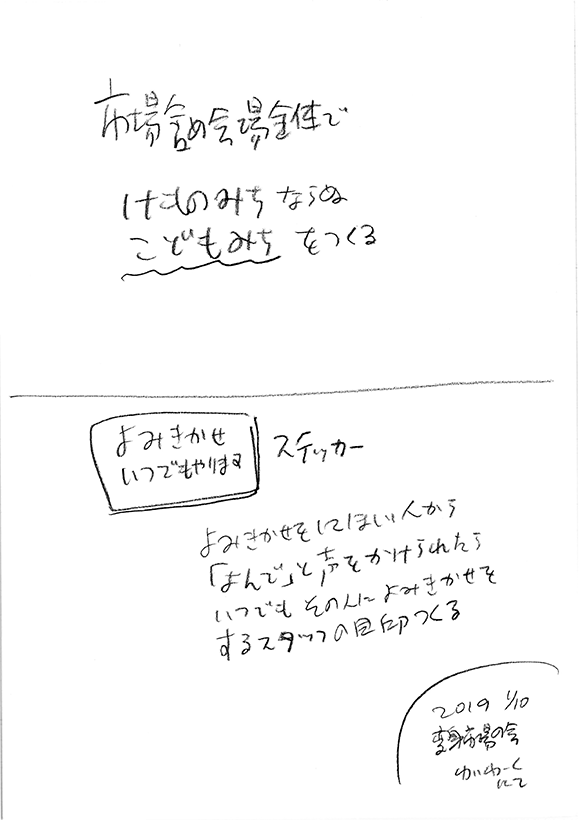 市場含め会場全体で
けものみちならぬ
こどもみちをつくる
よみきかせ
いつでもやります
ステッカー
よみきかせをしてほしい人から
「よんで」と声をかけられたら
いつでもその人によみきかせを
するスタッフの目印つくる
2019 1/10
変身市場の会
わいわーく
にて